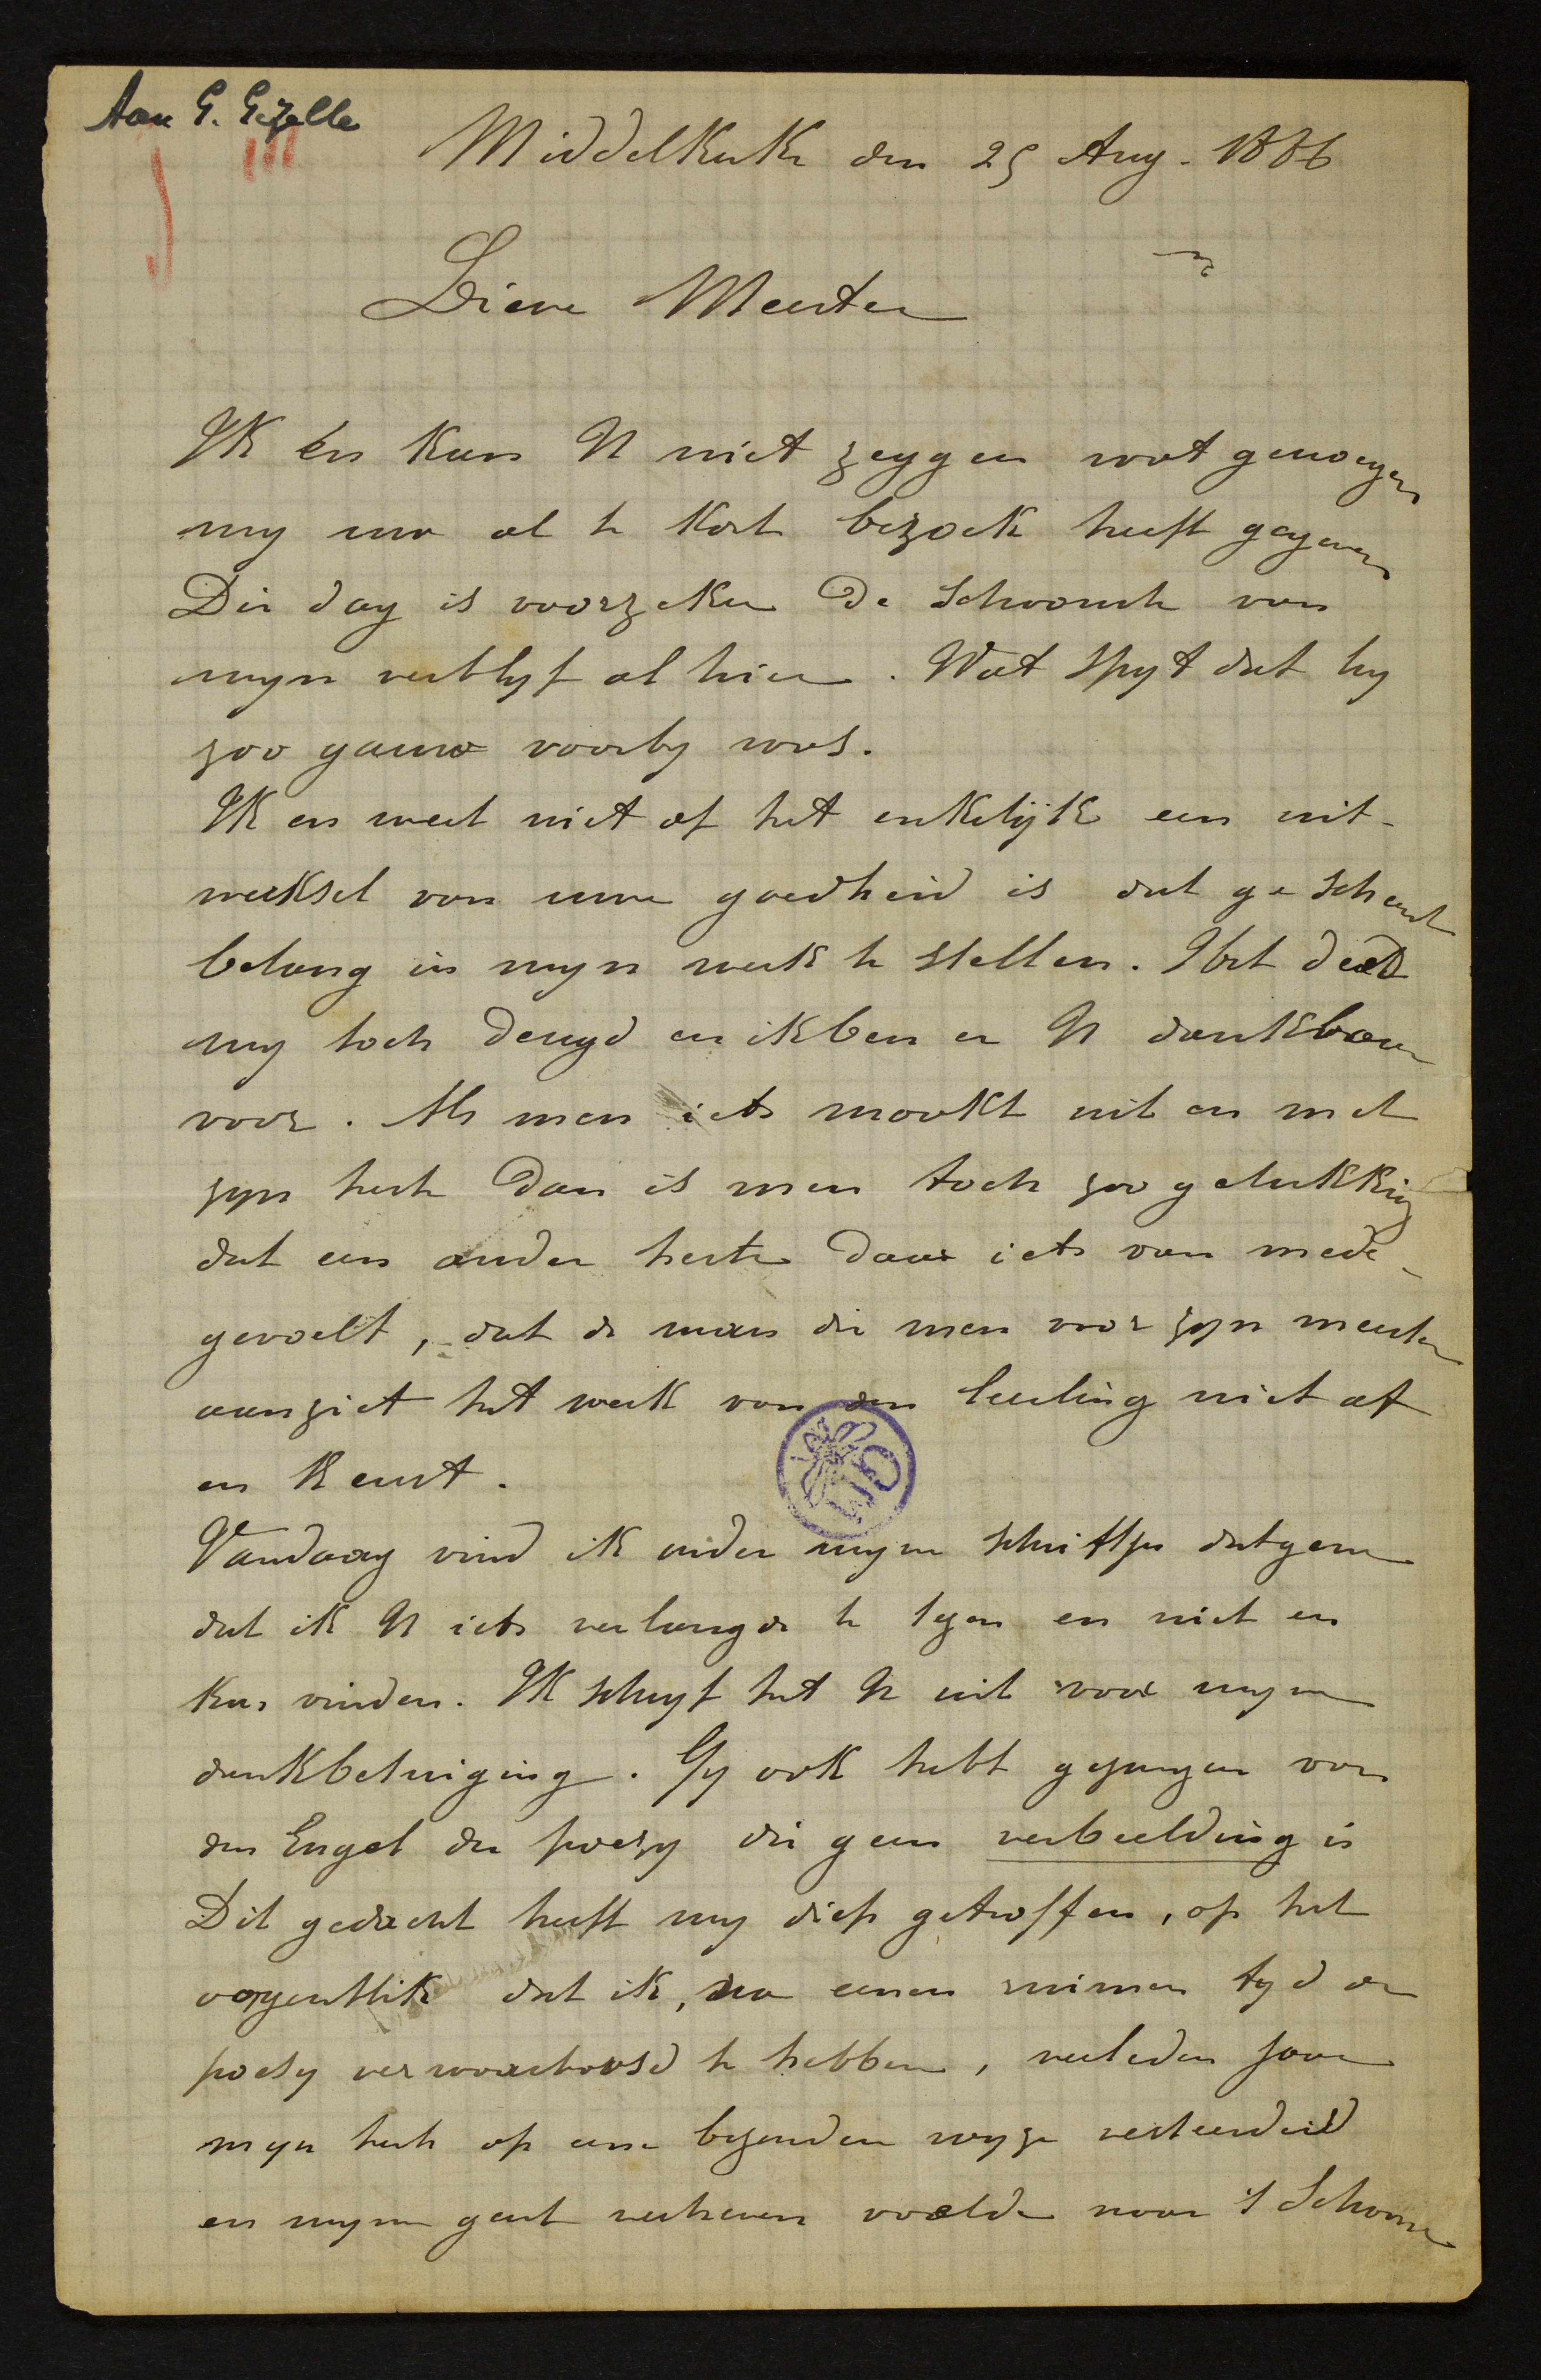 Aan G. Gezelle
Middelkerke den 25 Aug. 1886
Lieve Meester
Ik en kan U niet zeggen wat genoegen
my uw al te kort bezoek heeft gegeven
Die dag is voorzeker de schoonste van
myn verblyf alhier. Wat spyt dat hy
zoo gauw voorby was.
Ik en weet niet of het enkelijk een uit-
werksel van uwe goedheid is dat ge scheent
belang in myn werk te stellen. Het deed
my toch deugd en ik ben er U dankbaar
voor. Als men iets maakt uit en met
zyn herte dan is men toch zoo gelukkig
dat een ander herte daar iets van mede-
gevoelt, dat de man die men voor zyn meester
aanziet het werk van den leerling niet af
en keurt.
Vandaag vind ik onder myne schriften datgene
dat ik U iets verlangde te lezen en niet en
kon vinden. Ik schryf het U uit voor myne
dankbetuiging. Gy ook hebt gezongen van
den Engel der poëzy die geen verbeelding is
Dit gedacht heeft my diep getroffen, op het
oogenblik dat ik, na eenen ruimen tyd de
poësy verwaarloosd te hebben, verleden jaar
myn herte op eene byzondere wyze verteederd
en mynen geest verheven voelde naar 't Schoone